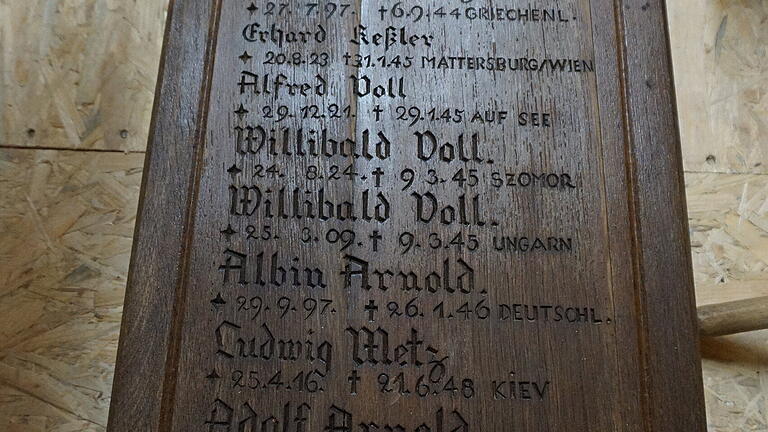 ✦ 27. 7. 97. † 6.9.44 GRIECHENL.
Erhard Keßler
✦ 20.8.23 †31.1.45 MATTERSBURG/WIEN
Alfred Voll
✦ 29.12.21. † 29.1.45 AUF SEE
Willibald Voll.
✦ 24. 8.24.† 9.3.45 SZOMOR
Willibald Voll.
✦ 25. 3.09.† 9.3.45 UNGARN
Albin Arnold.
✦ 29.9.97. †26.1.46 DEUTSCHL.
Ludwig Metz
✦ 25.4.16. † 21.6.48 KIEV
Adolf Arnold